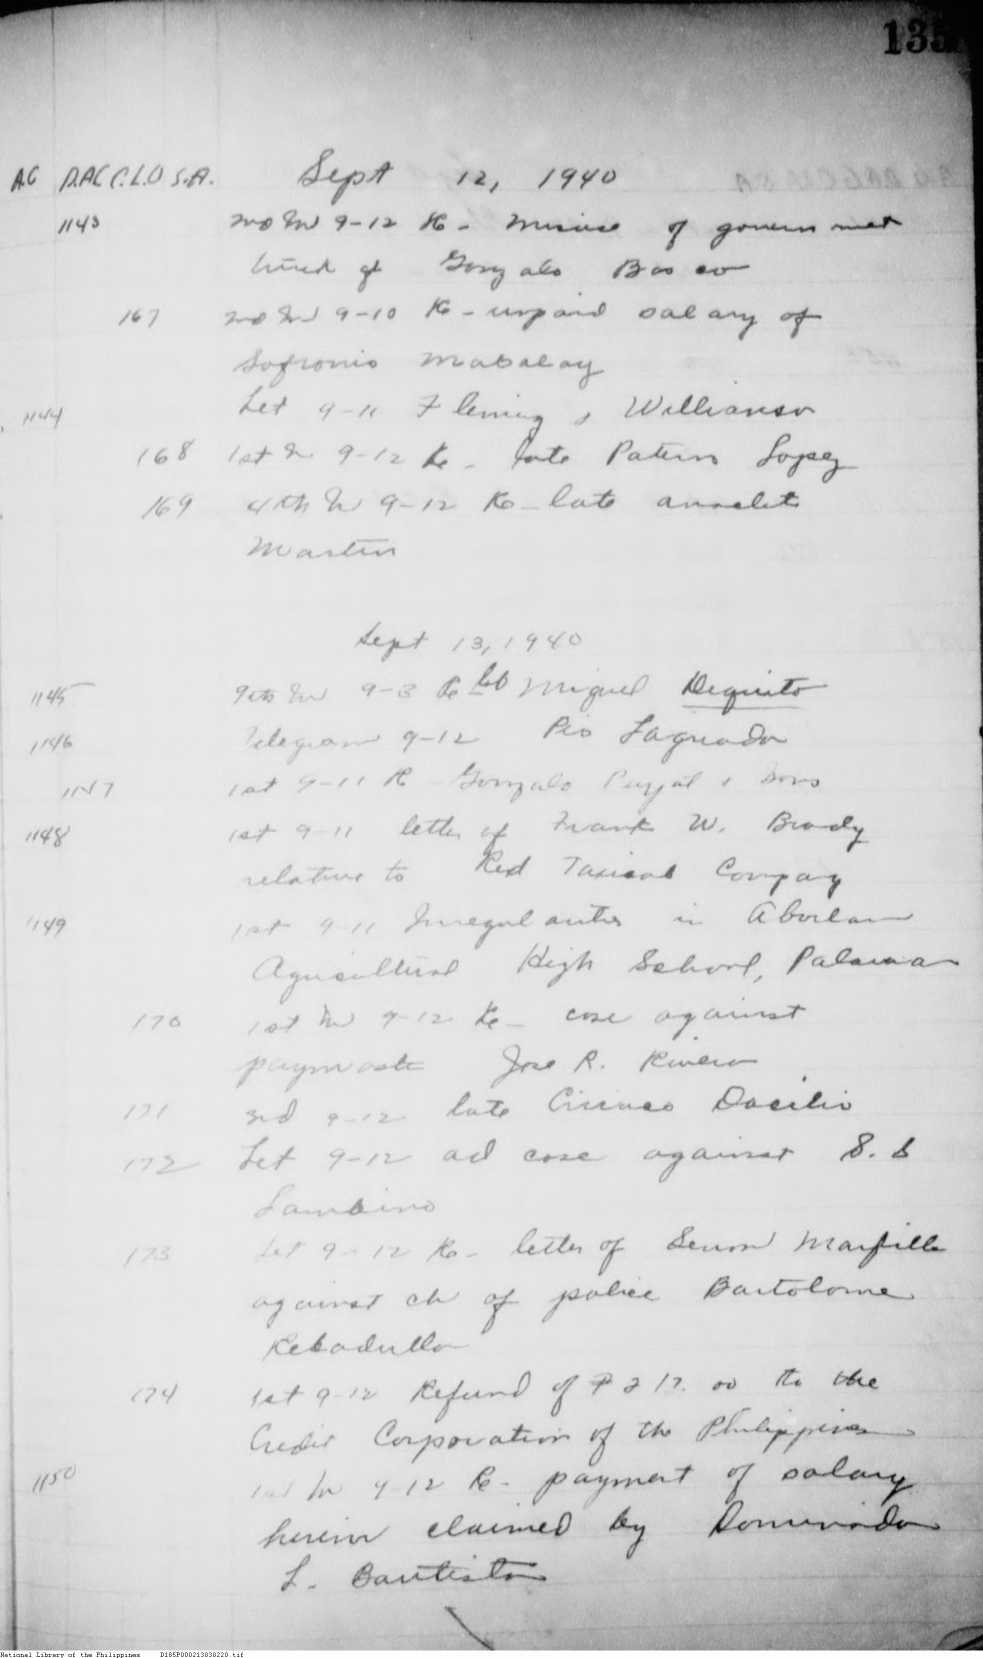 135
A.G D.A.C C.L.O S.A. Sept 12, 1940
1143 2nd In 9-12 Re - Misuse of government
Gonzalo Bosco
167 2nd Ind 9-10 Re - unpaid salary of
Sofronio Mabalay
1144 Let 9-11 Fleming & Williamson
168 1st In 9-12 Re - late Paterno Lopez
169 4th In 9-12 Re - late Anaclet
Martin
Sept 13, 1940
1145 9th In 9-3 Re Miguel Dequito
1146 Telegram 9-12 Pio Laguador
1147 1st 9-11 R Gonzalo Puyat & Sons
1148 1st 9-11 letter of Frank W. Brady
relative to Red Taxicab Company
1149 1st 9-11 Irregularities in Aborlan
Agricultural High School, Palawan
170 1st In 9-12 Re - case against
paymaster Jose R. Rivera
171 3rd 9-12 late Ciriaco Dacilio
172 Let 9-12 ad case against S. S
Lambino
173 Let 9-12 Re - letter of Senon Marfilla
against ch of police Bartolome
Rebadulla
174 1st 9-12 Refund of ₱217.00 to the
Credit Corporation of the Philippines
1150 In 9-12 Re - payment of salary
herein claimed by Dominador
L. Bautista
National Library of the Philippines D185P000213838220.tif